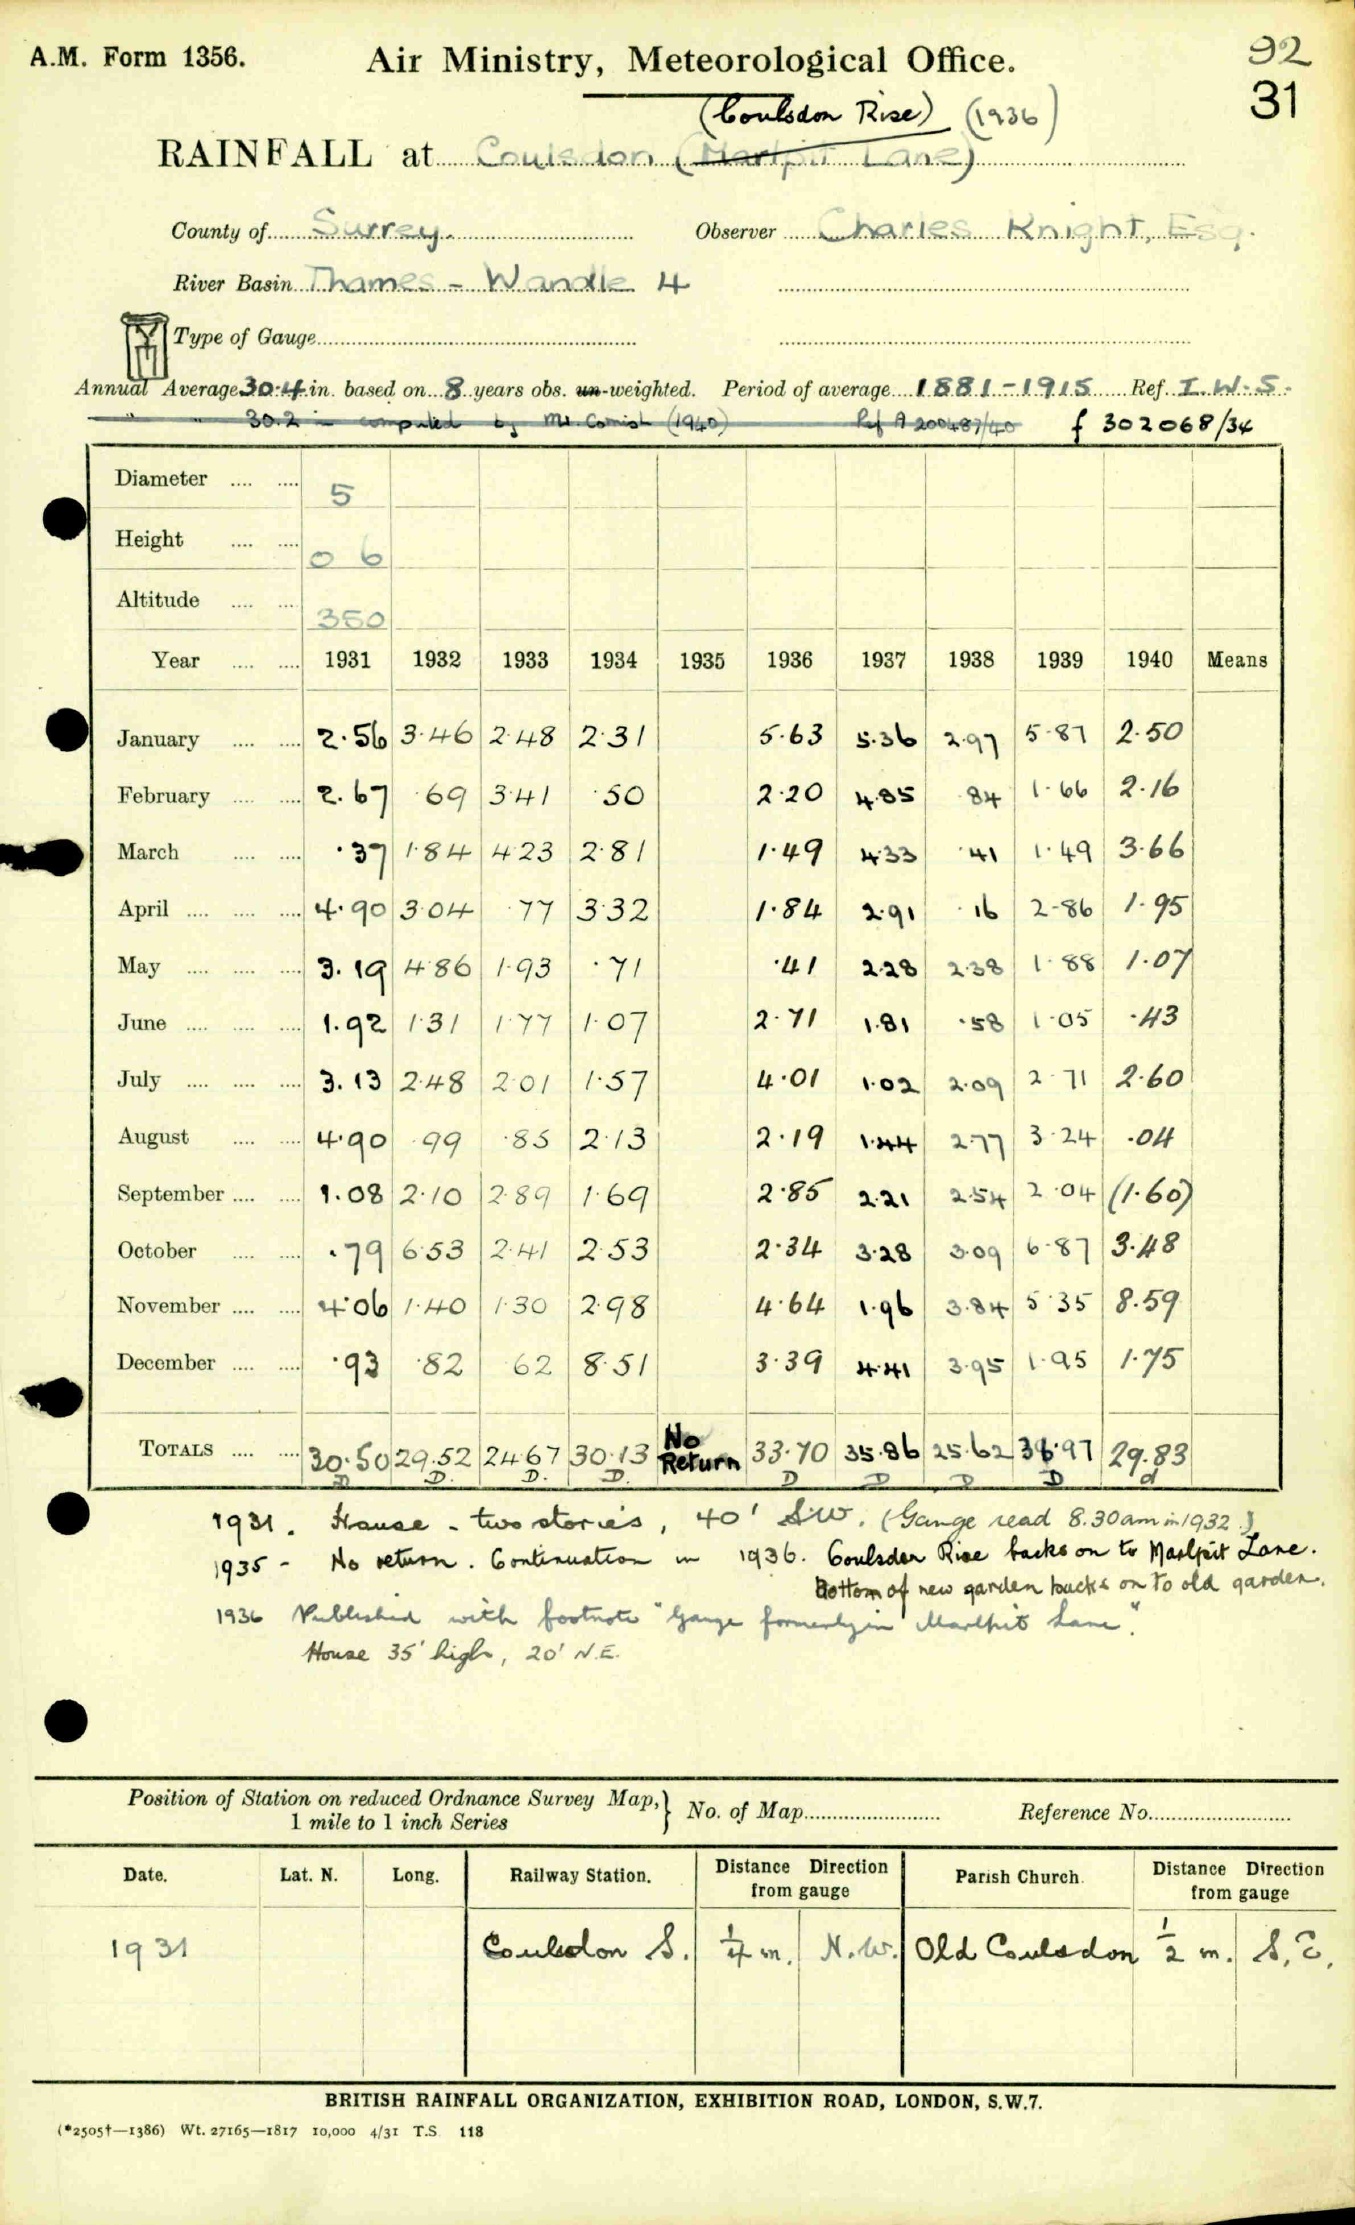 A.M. Form 1356. Air Ministry, Meteorological Office. 92
31
(Coulsdon Rise) (1936)
RAINFALL at Coulsdon (Marlpit Lane)
County of Surrey. Observer Charles Knight, Esq.
River Basin Thames - Wandle 4
Type of Gauge
Annual Average 30.4 in. based on 8 years obs. un-weighted. Period of average 1881-1915 Ref. I.W.S.
" " 30.2 in computed by Mr. Cornish (1940) Ref A 200487/40 f 302068/34
Diameter 5
Height 0 6
Altitude 350
Year 1931 1932 1933 1934 1935 1936 1937 1938 1939 1940 Means
January 2.56 3.46 2.48 2.31 5.63 5.36 2.97 5.87 2.50
February 2.67 .69 3.41 .50 2.20 4.85 .84 1.66 2.16
March .37 1.84 4.23 2.81 1.49 4.33 .41 1.49 3.66
April 4.90 3.04 .77 3.32 1.84 2.91 .16 2.86 1.95
May 3.19 4.86 1.93 .71 .41 2.28 2.38 1.88 1.07
June 1.92 1.31 1.77 1.07 2.71 1.81 .58 1.05 .43
July 3.13 2.48 2.01 1.57 4.01 1.02 2.09 2.71 2.60
August 4.90 .99 .85 2.13 2.19 1.44 2.77 3.24 .04
September 1.08 2.10 2.89 1.69 2.85 2.21 2.54 2.04 (1.60)
October .79 6.53 2.41 2.53 2.34 3.28 3.09 6.87 3.48
November 4.06 1.40 1.30 2.98 4.64 1.96 3.84 5.35 8.59
December .93 .82 .62 8.51 3.39 4.41 3.95 1.95 1.75
TOTALS 30.50 29.52 24.67 30.13 No Return 33.70 35.86 25.62 36.97 29.83
D D. D. D. D D D D d
1931. House - two stories, 40' S.W. (Gauge read 8.30am in 1932.)
1935 - No return. Continuation in 1936. Coulsdon Rise backs on to Marlpit Lane.
Bottom of new garden backs on to old garden.
1936 Published with footnote "Gauge formerly in Marlpit Lane".
House 35' high, 20' N.E.
Position of Station on reduced Ordnance Survey Map, } No. of Map Reference No.
1 mile to 1 inch Series
Date. Lat. N. Long. Railway Station. Distance Direction from gauge Parish Church. Distance Direction from gauge
1931 Coulsdon S. 1/4 m. N.W. Old Coulsdon 1/2 m. S.E.
BRITISH RAINFALL ORGANIZATION, EXHIBITION ROAD, LONDON, S.W.7.
(*2505†—1386) Wt. 27165—1817 10,000 4/31 T.S 118